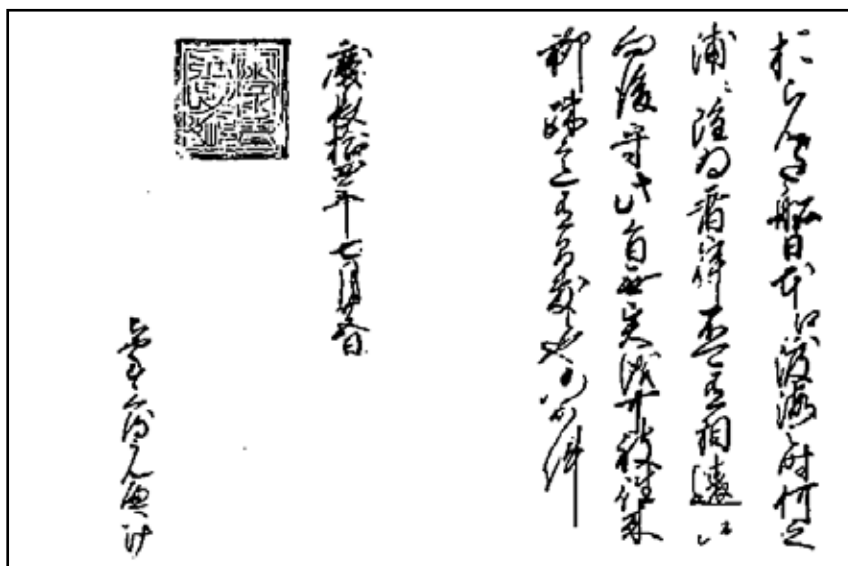 おらんだ船日本江渡海之時何之
浦々雖為着岸不可有相違候
向後守此旨無異儀可被往来
聊疎意有間敷候也仍如件
慶長拾四年七月廿五日